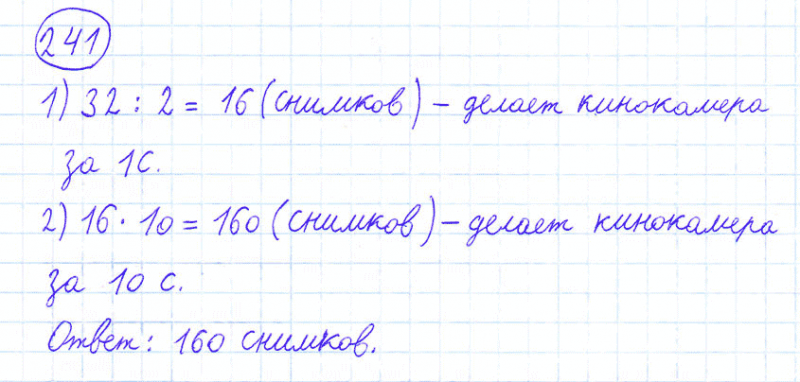 241
1) 32 : 2 = 16 (снимков) – делает кинокамера
за 1с.
2) 16 · 10 = 160 (снимков) – делает кинокамера
за 10 с.
Ответ: 160 снимков.